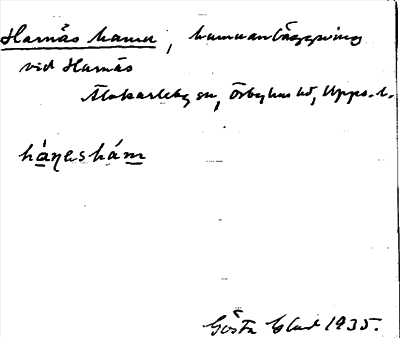 Harnäs hamn, hamnanläggning
vid Harnäs
Älvkarleby sn, Örbyhus hd, Upps. l.
háŋeshám
Gösta 1935.